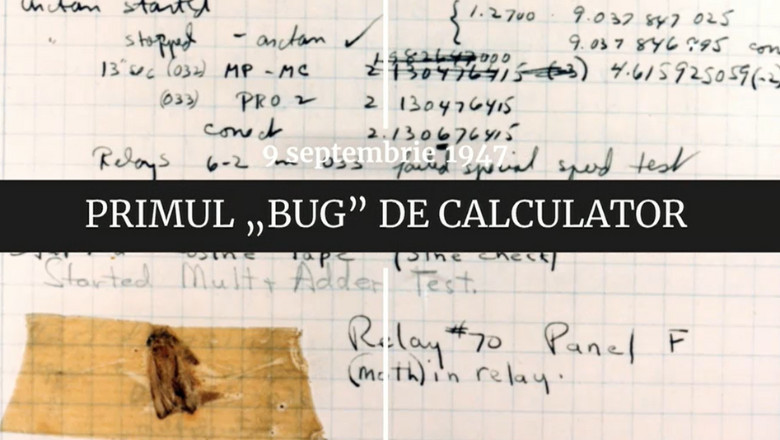 arctan started
{ 1.2700 9.037 847 025
stopped - arctan ✓ 9.037 846 995 con
13"uc (032) MP - MC 2.130476415 (-3) 4.615925059(-2
(033) PRO 2 2 130476415
conect 2.130676415
9 septembrie 1947
Relays 6-2 in 033 failed special speed test
PRIMUL „BUG” DE CALCULATOR
Sine Tape (Sine check)
Started Mult + Adder Test.
Relay #70 Panel F
(moth) in relay.